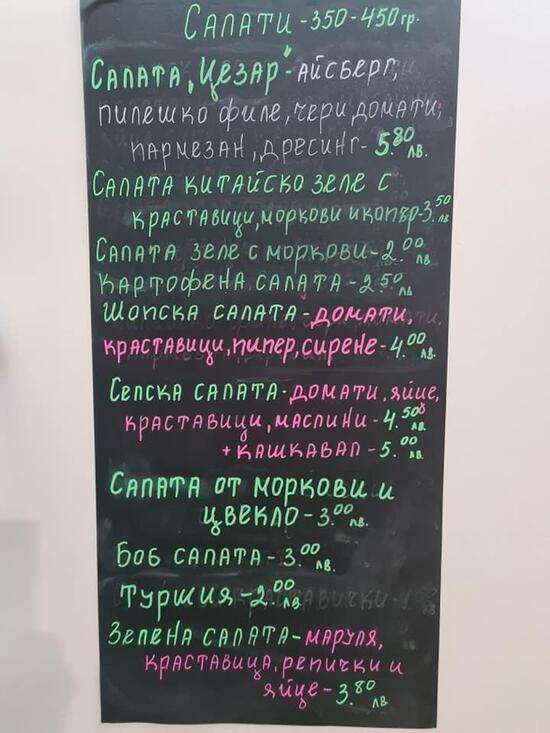 САЛАТИ - 350 - 450 гр.
САЛАТА „ЦЕЗАР" - АЙСБЕРГ,
ПИЛЕШКО ФИЛЕ, ЧЕРИ ДОМАТИ,
ПАРМЕЗАН, ДРЕСИНГ - 5.80 ЛВ.
САЛАТА КИТАЙСКО ЗЕЛЕ С
КРАСТАВИЦИ, МОРКОВИ И КОПЪР - 3.50 ЛВ
САЛАТА ЗЕЛЕ С МОРКОВИ - 2.00 ЛВ.
КАРТОФЕНА САЛАТА - 2.50 ЛВ
ШОПСКА САЛАТА - ДОМАТИ,
КРАСТАВИЦИ, ПИПЕР, СИРЕНЕ - 4.00 ЛВ.
СЕЛСКА САЛАТА - ДОМАТИ, ЯЙЦЕ,
КРАСТАВИЦИ, МАСЛИНИ - 4.50 ЛВ.
+ КАШКАВАЛ - 5.00 ЛВ.
САЛАТА ОТ МОРКОВИ И
ЦВЕКЛО - 3.00 ЛВ.
БОБ САЛАТА - 3.00 ЛВ.
ТУРШИЯ - 2.00 ЛВ.
ЗЕЛЕНА САЛАТА - МАРУЛЯ,
КРАСТАВИЦА, РЕПИЧКИ И
ЯЙЦЕ - 3.80 ЛВ